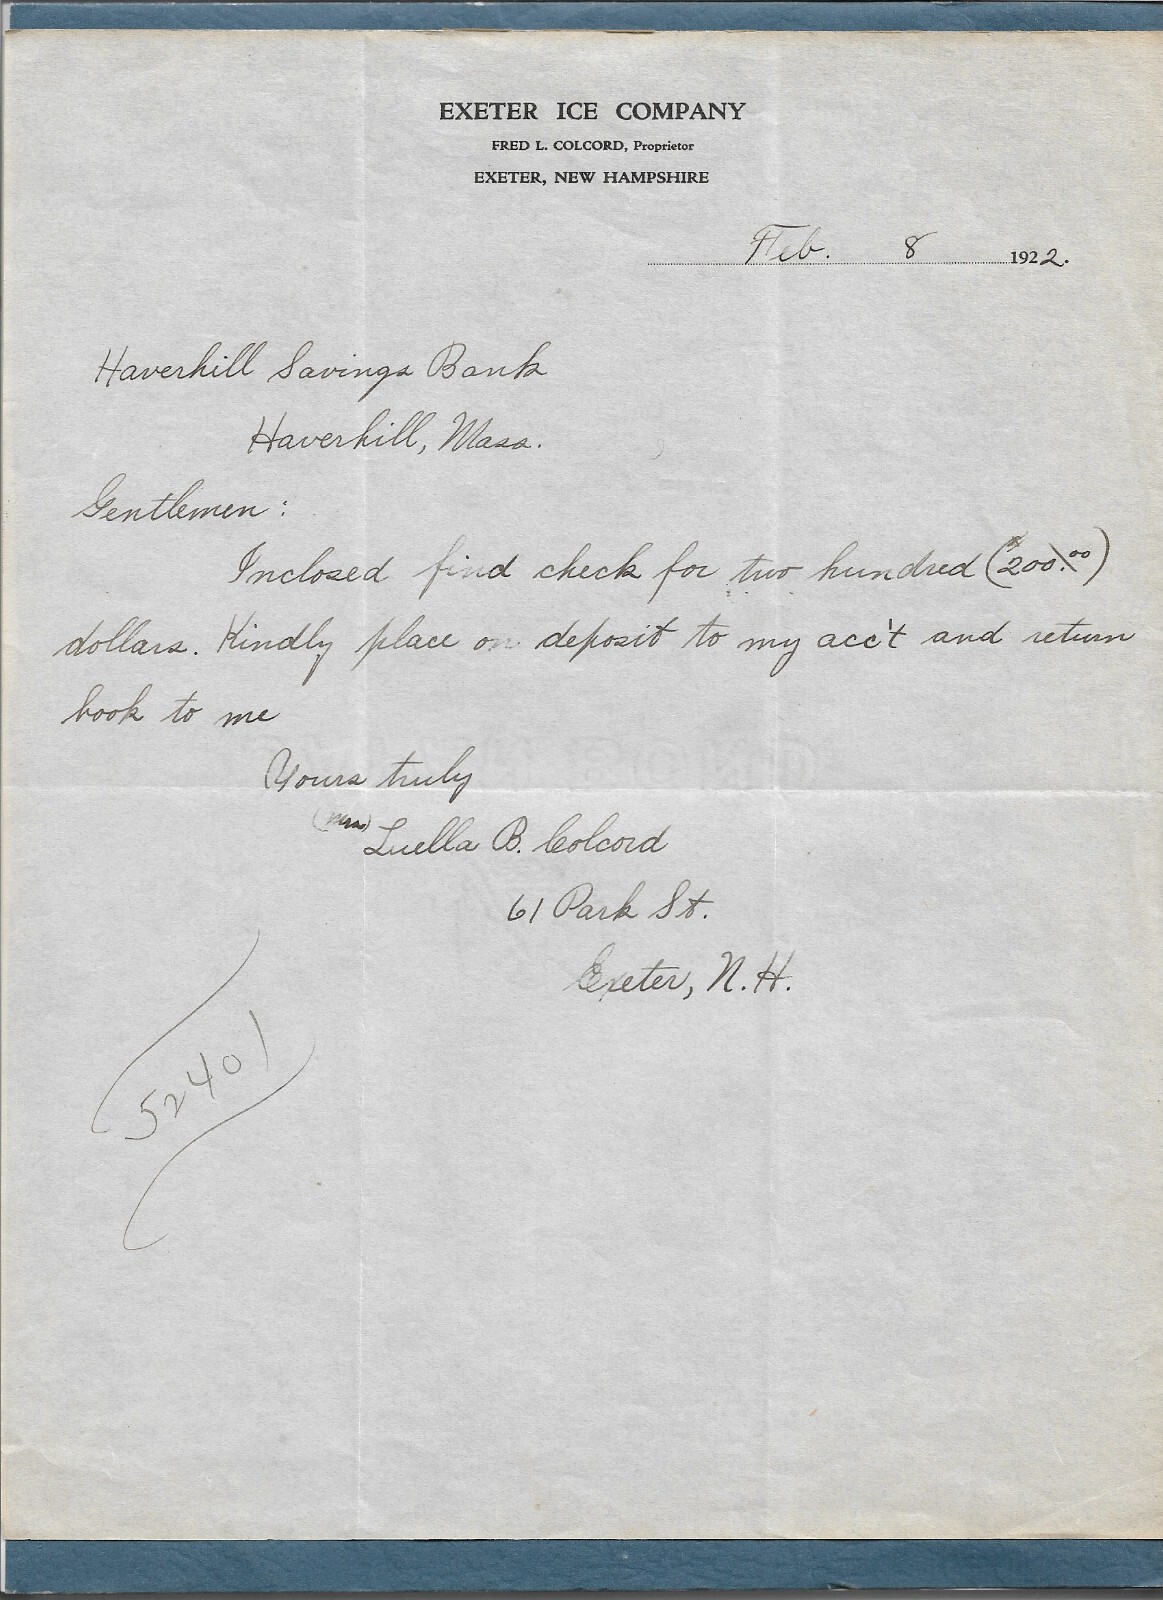 EXETER ICE COMPANY
FRED L. COLCORD, Proprietor
EXETER, NEW HAMPSHIRE
Feb. 8 1922.
Haverhill Savings Bank
Haverhill, Mass.
Gentlemen:
Inclosed find check for two hundred ($200.00)
dollars. Kindly place on deposit to my acc't and return
book to me
Yours truly
(Mrs) Luella B. Colcord
61 Park St.
Exeter, N.H.
52401